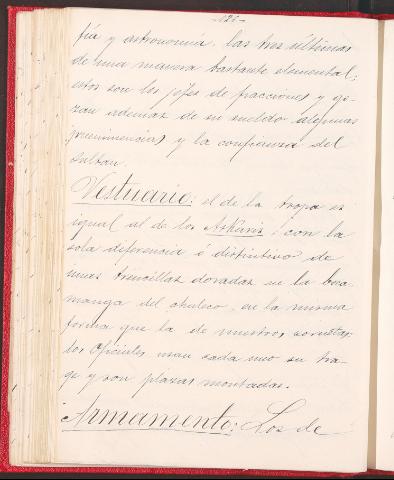 -126-
fía y astronomía, las tres últimas
de una manera bastante elemental;
estos son los jefes de fracciones y go-
zan ademas de su sueldo algunas
preeminencias y la confianza del
Sultan.
Vestuario: el de la tropa es
igual al de los Askaris, con la
sola diferencia ó distintivo de
unas trencillas doradas en la boca
manga del chaleco, en la misma
forma que la de nuestros cornetas,
los Oficiales usan cada uno su tra-
ge y son plazas montadas.
Armamento: Los de